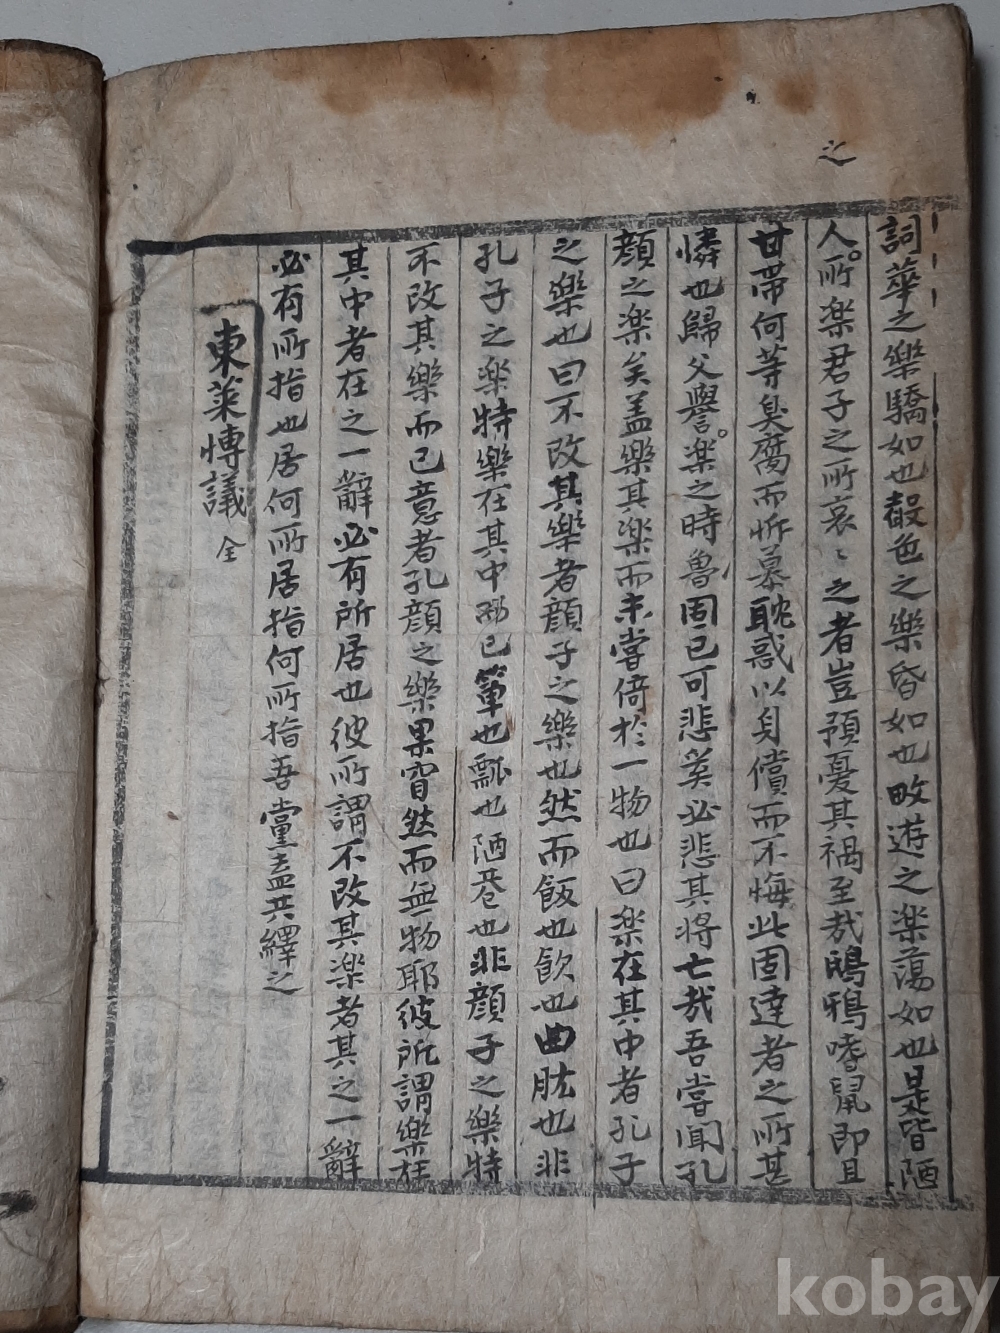 之
詞華之樂驕如也嗀色之樂昏如也畋遊之楽蕩如也是皆陋
人。所楽君子之所哀〻之者豈預憂其禍至哉鴟鴉嗜鼠即且
甘帶何等臭腐而忻慕耽惑以身償而不悔此固達者之所甚
憐也歸父譽。楽之時魯固已可悲奚必悲其將亡哉吾嘗聞孔
顔之楽矣盖樂其楽而未嘗倚於一物也曰楽在其中者孔子
之樂也曰不改其樂者顔子之樂也然而飯也飮也曲肱也非
孔子之楽特樂在其中而已簞也瓢也陋巷也非顔子之樂特
不改其樂而已意者孔顔之樂果窅然而無一物耶彼所謂樂在
其中者在之一辭必有所居也彼所謂不改其楽者其之一辭
必有所指也居何所居指何所指吾黨盍共繹之
東萊博議 全
kobay